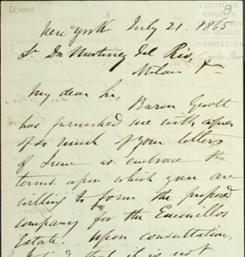 New York July 21. 1865
Sr Dn Martinez Del Rio,
My dear Sir, Baron
has furnished me with a
of so much of your letters
of June as embrace the
terms upon which you are
willing to form the proposed
company for the
Estate. Upon consultation,
that it is not